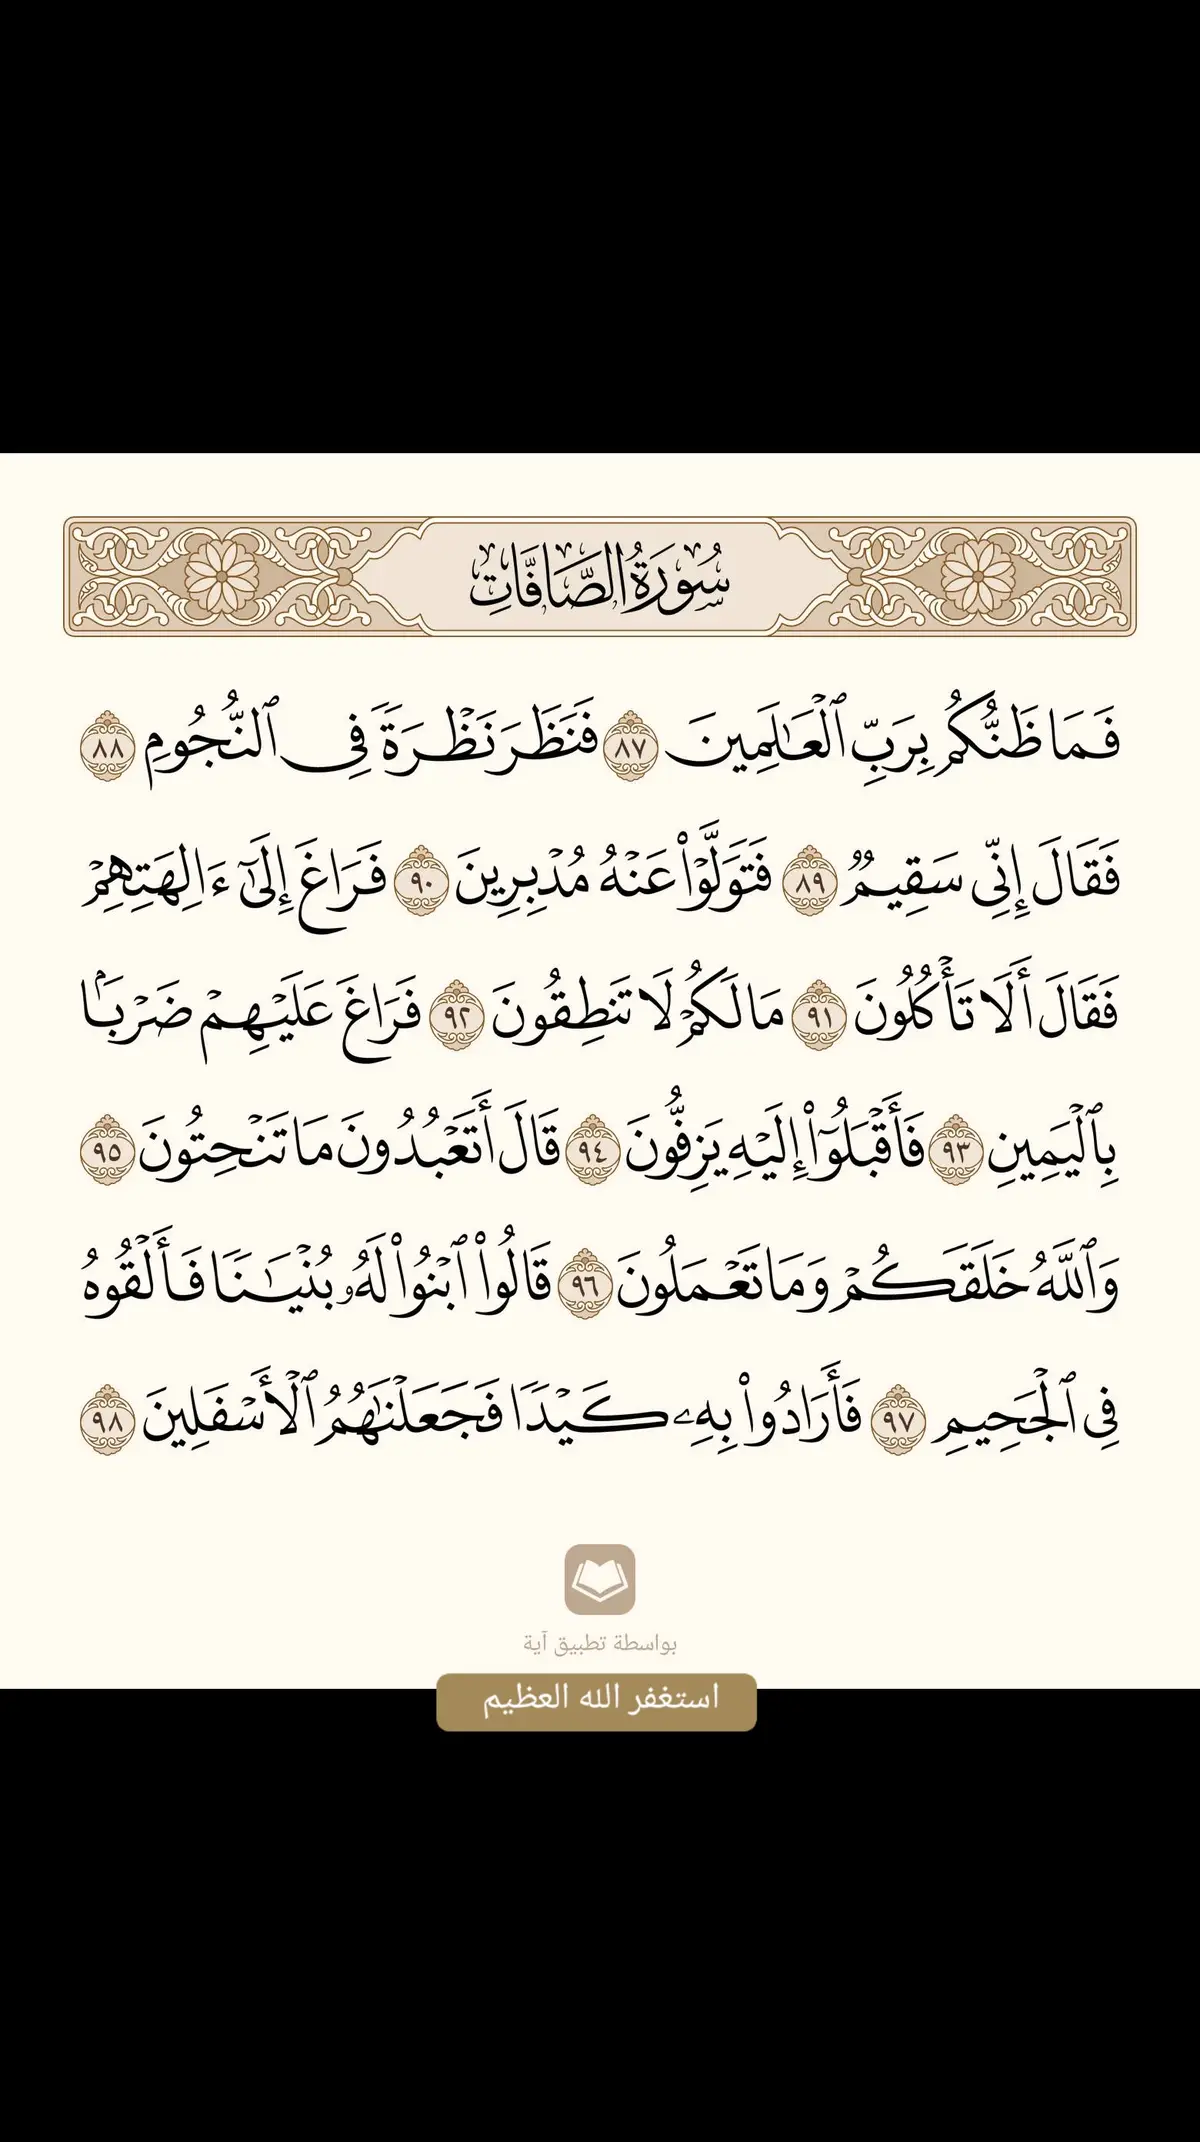 سُورَةُ الصَّافَّاتِ
فَمَا ظَنُّكُم بِرَبِّ ٱلْعَٰلَمِينَ ٨٧ فَنَظَرَ نَظْرَةً فِى ٱلنُّجُومِ ٨٨
فَقَالَ إِنِّى سَقِيمٌ ٨٩ فَتَوَلَّوْا۟ عَنْهُ مُدْبِرِينَ ٩٠ فَرَاغَ إِلَىٰٓ ءَالِهَتِهِمْ
فَقَالَ أَلَا تَأْكُلُونَ ٩١ مَا لَكُمْ لَا تَنطِقُونَ ٩٢ فَرَاغَ عَلَيْهِمْ ضَرْبًۢا
بِٱلْيَمِينِ ٩٣ فَأَقْبَلُوٓا۟ إِلَيْهِ يَزِفُّونَ ٩٤ قَالَ أَتَعْبُدُونَ مَا تَنْحِتُونَ ٩٥
وَٱللَّهُ خَلَقَكُمْ وَمَا تَعْمَلُونَ ٩٦ قَالُوا۟ ٱبْنُوا۟ لَهُۥ بُنْيَٰنًا فَأَلْقُوهُ
فِى ٱلْجَحِيمِ ٩٧ فَأَرَادُوا۟ بِهِۦ كَيْدًا فَجَعَلْنَٰهُمُ ٱلْأَسْفَلِينَ ٩٨
بواسطة تطبيق آية
استغفر الله العظيم